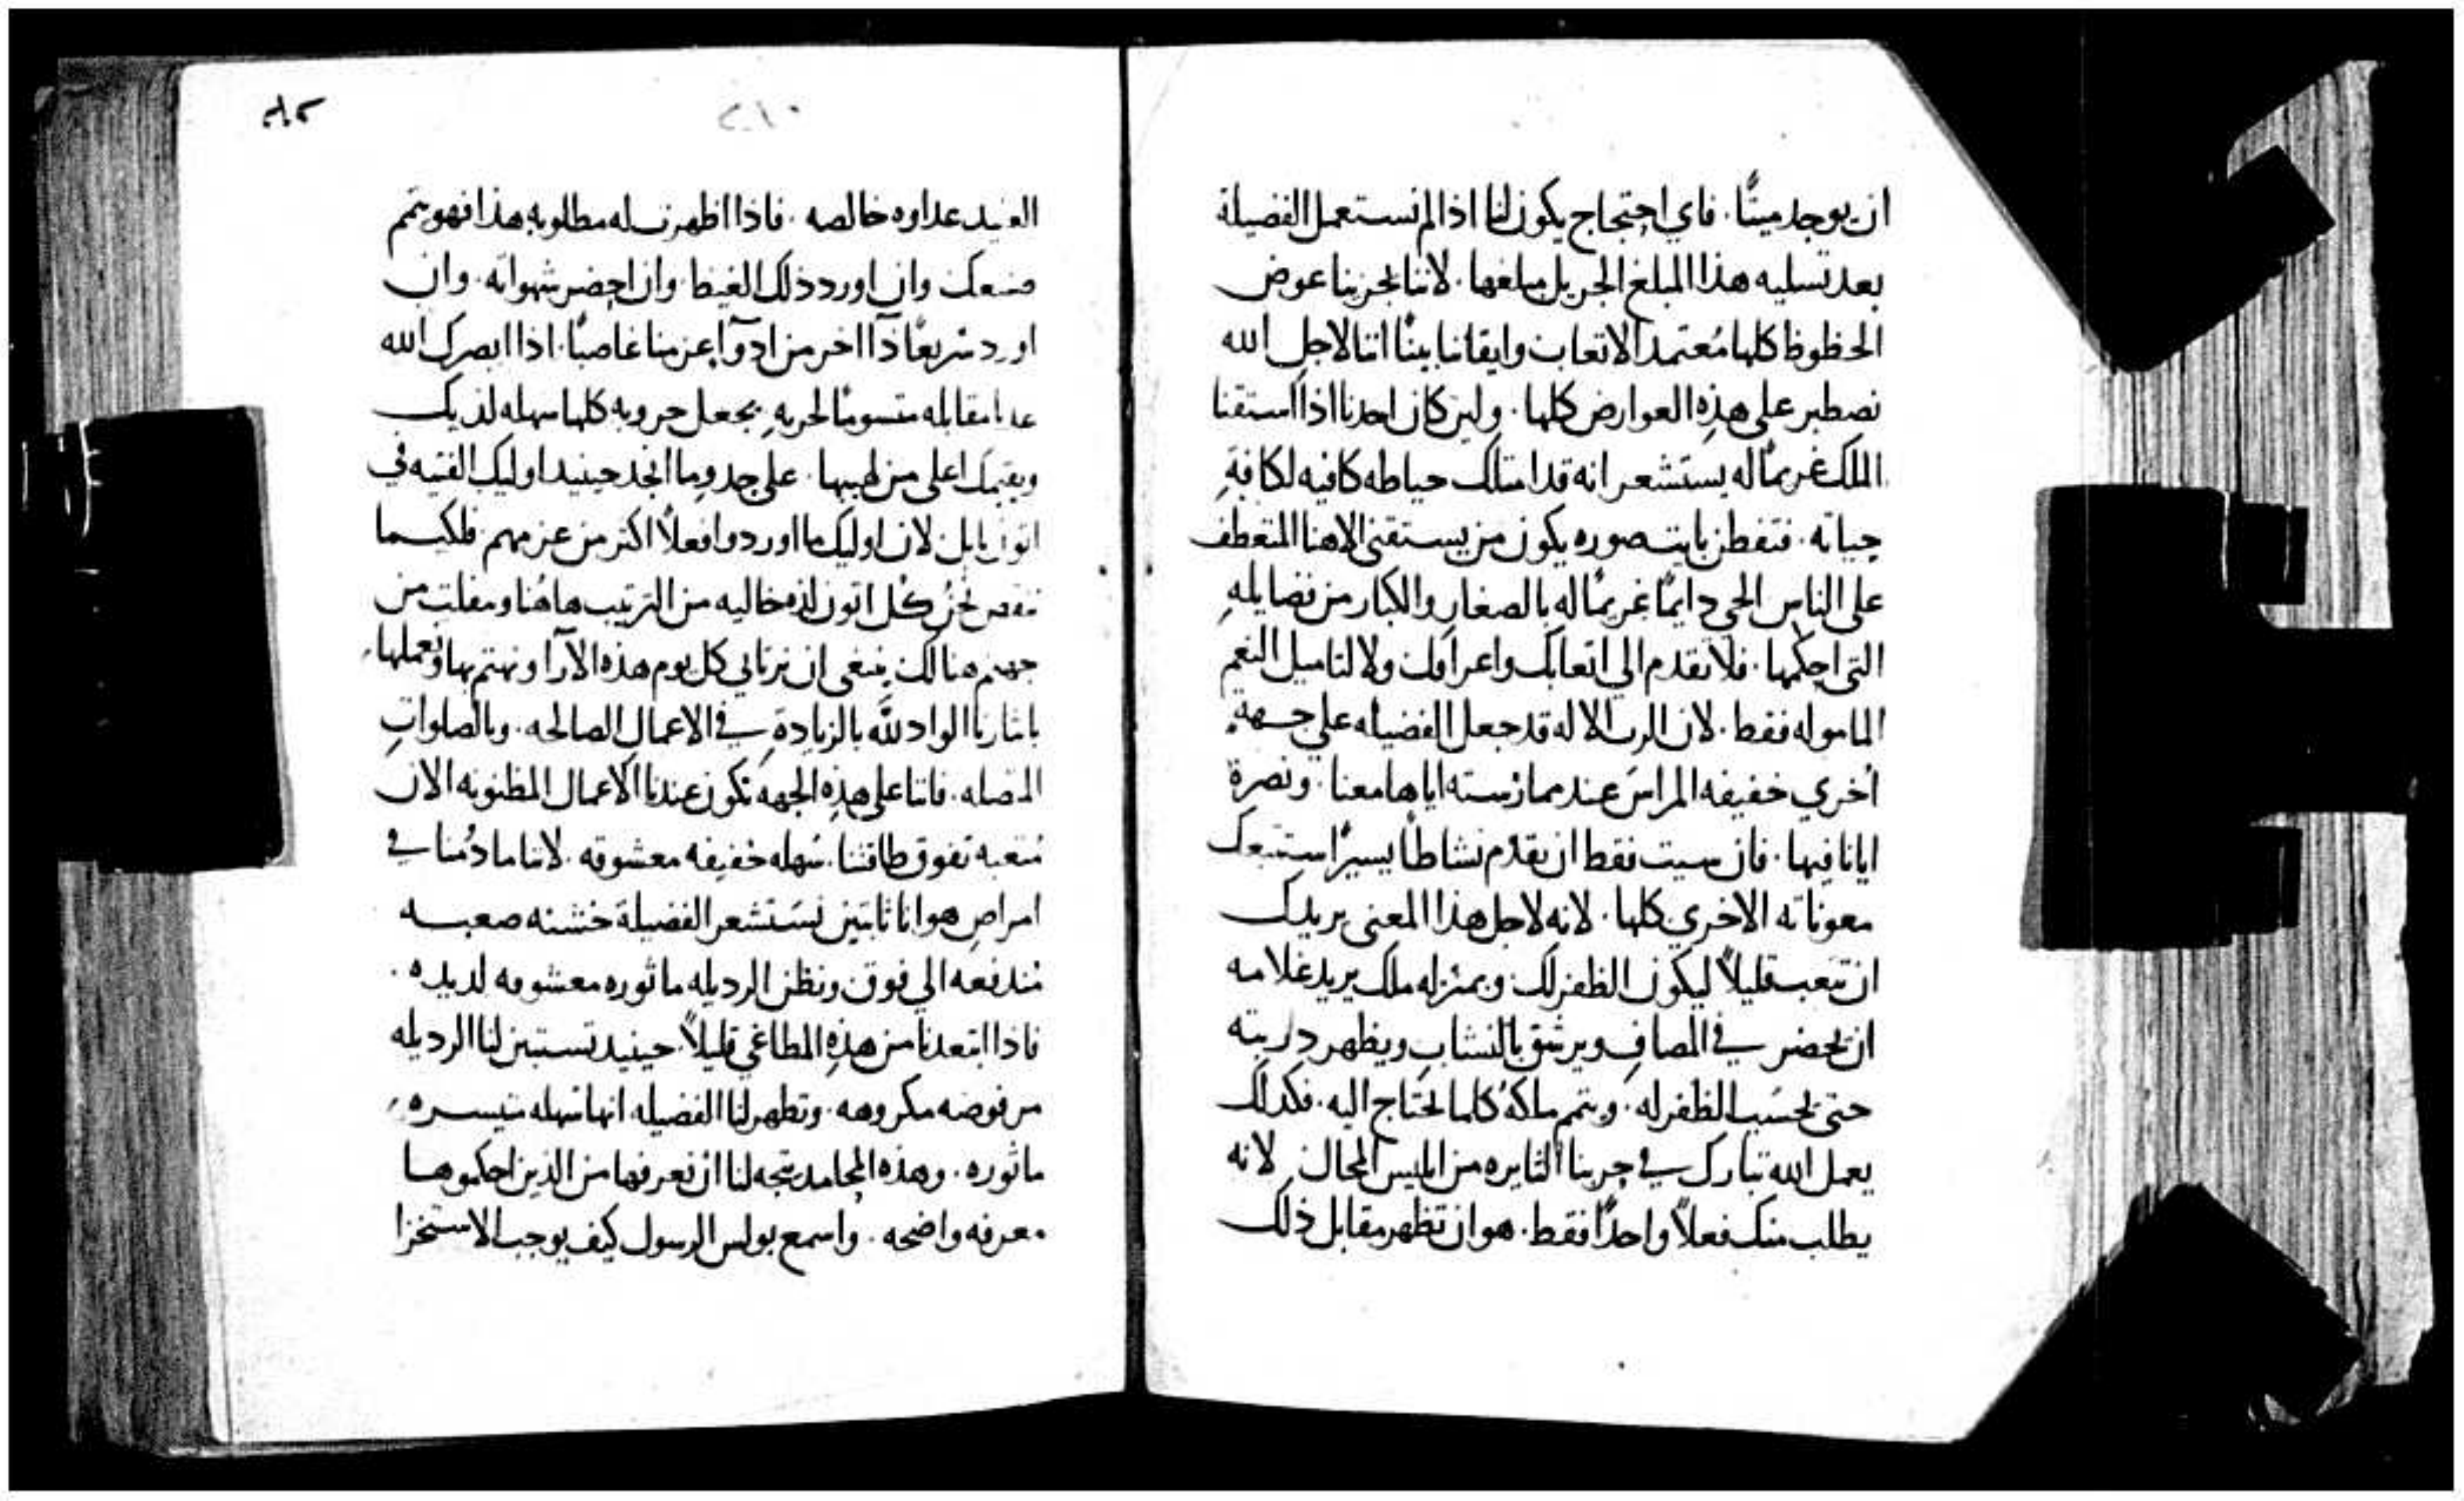 ان يوجد ميتًا. فاي احتجاج يكون لنا اذا لم نستعمل الفضيلة
بعد تسليه هذا المبلغ الجزيل مبلغها. لاننا يجزينا عوض
الحظوظ كلها مُعتمد الاتعاب وايقاننا بيننا اننا لاجل الله
نصطبر على هذه العوارض كلها. ولين كان احدنا اذا استقنا
الملك غريمًا له يستشعر انه قد امتلك حياطه كافيه لكافةِ
حياته. فتفطن بايت صوره يكون من يستقني الاهنا المتعطف
على الناس الحي دايمًا غريمًا له بالصغار والكبار من فضايلهِ
التي احكمها. فلا تقدم الي اتعابك واعراقك ولا لتاميل النعم
الماموله فقط. لان الرب الاله قد جعل الفضيله علي جهةٍ
اُخري خفيفه المراس عند ممارسته اياها معنا. ونصرة
ايانا فيها. فان سيت فقط ان تقدم نشاطًا يسيرًا استتبعك
معوناته الاخري كلها. لانه لاجل هذا المعنى يريدك
ان تتعب قليلاً ليكون الظفر لك وبمنزله ملك يريد غلامه
ان يحضر في المصاف ويرشق بالنشاب ويظهر دربته
حتى يحسَب الظفر له. ويتمم ملكهُ كلما يحتاج اليه. فكذلك
يعمل الله تبارك في حربنا الثايره من ابليس المحال لانه
يطلب منك فعلاً واحدًا فقط. هو ان تظهر مقابل ذلك
٢١٠
العنيد عداوه خالصه. فاذا اظهرت له مطلوبه هذا فهو يتمم
وان اورد ذلك الغيظ. وان احضر شهواته. وان
اورد سريعًا دآ اخر من ادوآ عزمنا غاصبًا. اذا ابصرك الله
مقابله متسومًا لحربهِ يجعل حروبه كلها سهله لديك
ويقيمك اعلى من لهيبها. علي حدوما انجد حينيد اوليك الفتيه في
اتون بابل لان اوليك ما اوردوا فعلاً اكثر من عزمهم. فلكيما
نحن كل اتون لذه خاليه من الترتيب هاهُنا ونفلت من
جهنم هنالك ينبغي ان نرتاي كل يوم هذه الآرا ونهتم بها ونعملها
بايثارنا الواد للَّه بالزيادةِ في الاعمال الصالحه. وبالصلواتِ
المتصله. فاننا على هذهِ الجهه تكون عندنا الاعمال المظنونه الان
مُتعبه تفوق طاقتنا. سَهله خفيفه معشوقه. لاننا ما دُمنا في
امراض هوانا ثابتين نستشعر الفضيلة خشنه صعبه
مُندفعه الي فوق ونظن الرديله ماثوره معشوقه لديده.
فاذا ابتعدنا من هذهِ المطاغي قليلاً. حينيد تستبين لنا الرديله
مرفوضه مكروهه. وتظهر لنا الفضيله انها سهله متيسره
ماثوره. وهذه المحامد يتجه لنا ان نعرفها من الذين احكموها
معرفه واضحه. واسمع بولس الرسول كيف يوجب الاستخزا